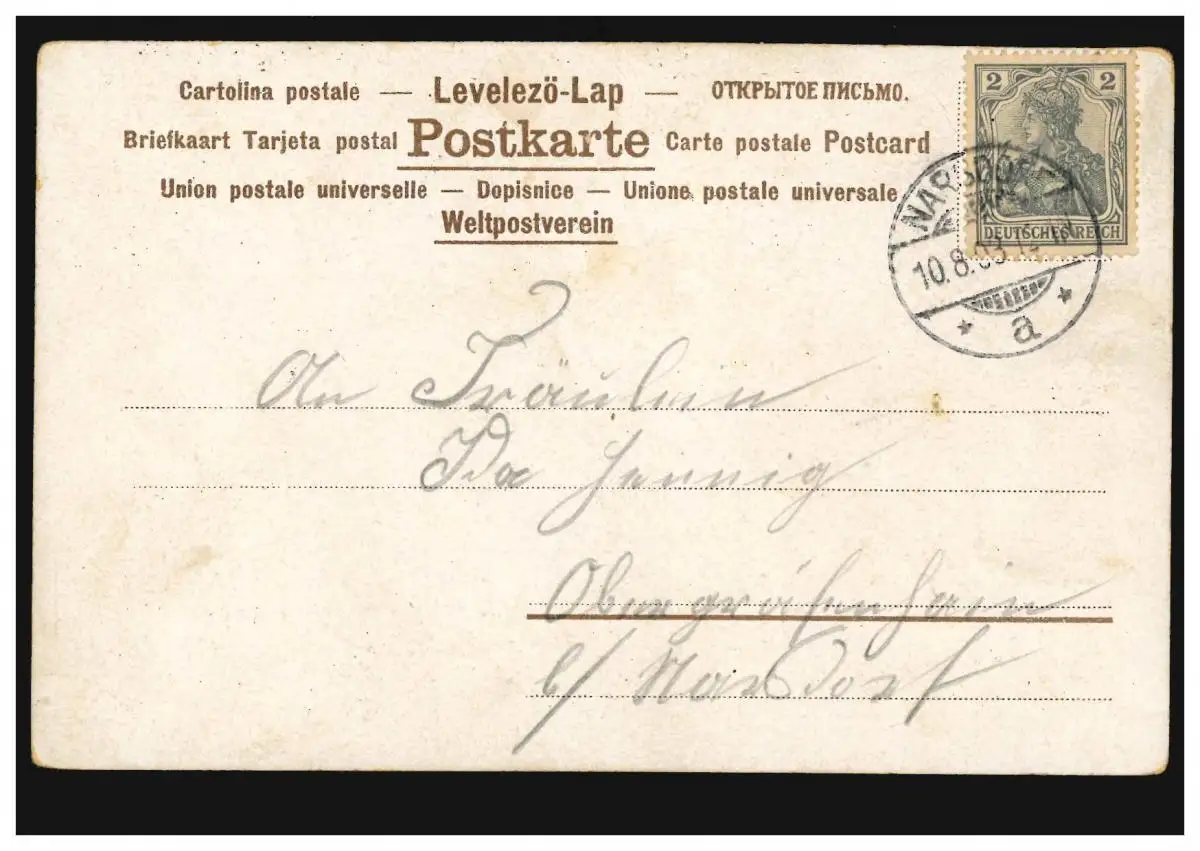 Cartolina postale — Levelezö-Lap — ОТКРЫТОЕ ПИСЬМО.
Briefkaart Tarjeta postal Postkarte Carte postale Postcard
Union postale universelle — Dopisnice — Unione postale universale
Weltpostverein
2 2
DEUTSCHES REICH
NARSDORF
10.8.03
* a *
An Fräulein
Ida Hennig
Obergräfenhain
b/ Narsdorf